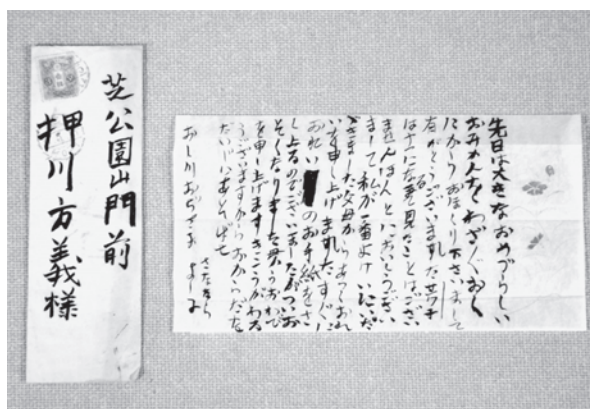 芝公園山門前
押川方義様
先日は大きなおめづらしい
おみかんたくわざ／＼おく
下さいまして
有がとうございました
見たことはござい
ませんほんとにおいしうござい
まして私が一番よけいにいただ
きました父母からあつくおれ
いを申し上げましたすぐに
おれいのお手紙をさ
し上るのでございましたがついお
そくなりました母もおわび
を申し上げますきこうがわる
うございますからおからだを
だいじにあそばせ
よし子
おし川おぢさま